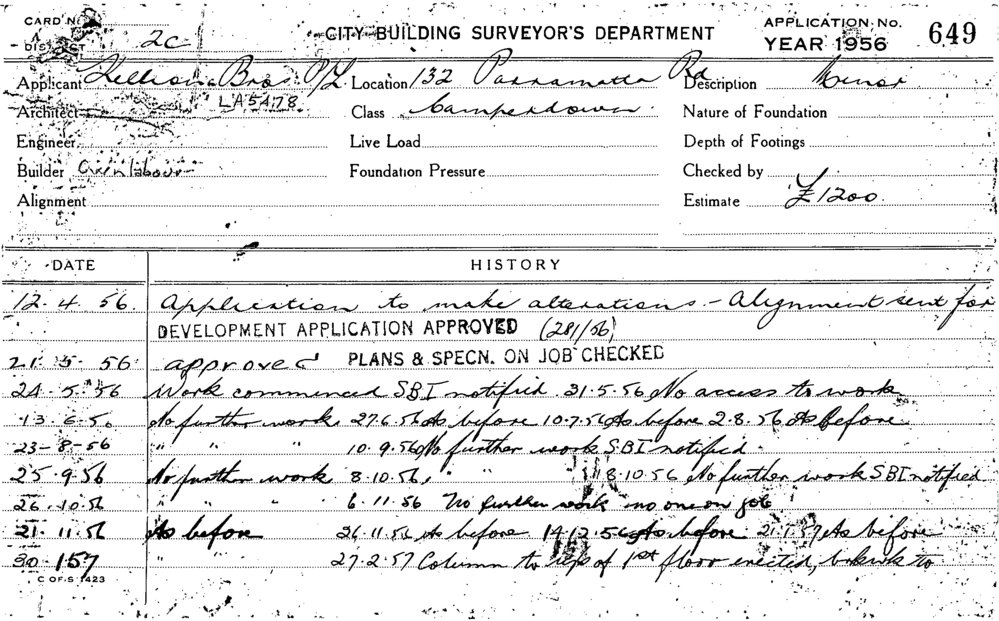 CARD No.
DISTRICT 2c
CITY BUILDING SURVEYOR'S DEPARTMENT
APPLICATION No. 649
YEAR 1956
Applicant Bros P/L Location 132 Parramatta Rd Description Minor
LA5478
Architect Class Camperdown Nature of Foundation
Engineer Live Load Depth of Footings
Builder Foundation Pressure Checked by
Alignment Estimate £1200
DATE HISTORY
12.4.56. Application to make alterations - Alignment sent for
DEVELOPMENT APPLICATION APPROVED (281/56)
21.5.56 approved PLANS & SPECN. ON JOB CHECKED
24.5.56 Work commenced SBI notified. 31.5.56 No access to work
13.6.56 No further work 27.6.56 As before 10.7.56 As before 2.8.56 As before
23-8-56 " " " 10.9.56 No further work SBI notified.
25.9.56 No further work 8.10.56. " " 8.10.56 No further work SBI notified
26.10.56 " " " 6.11.56 No further work no one on job
21.11.56 As before 26.11.56 As before 14.12.56 As before 21.1.57 As before
30.1.57 " " 27.2.57 Column to of 1st floor erected, to
C OF S 1423